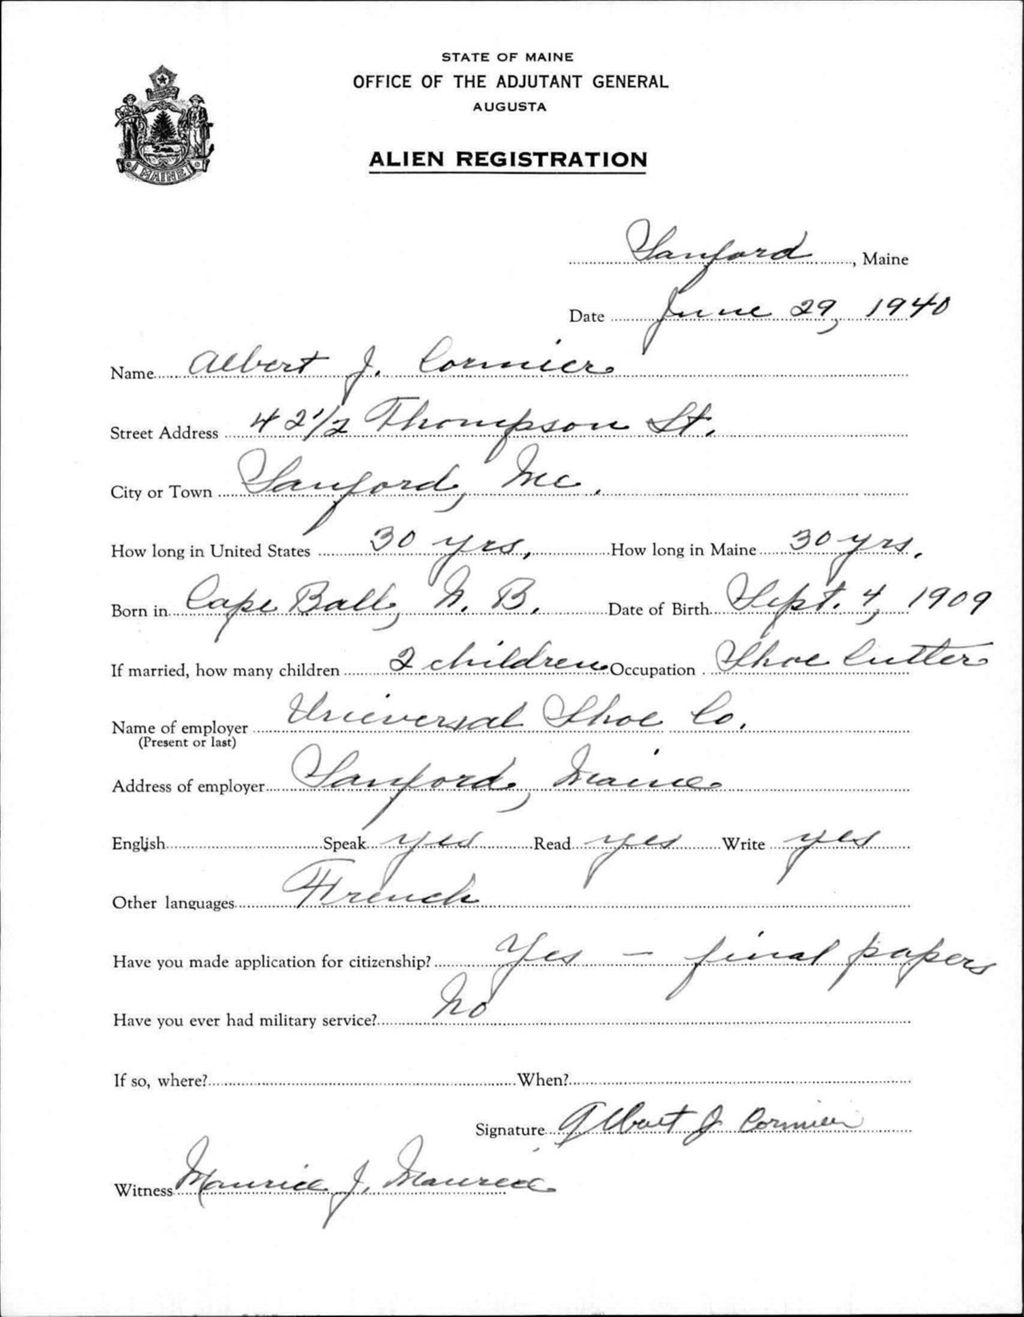 STATE OF MAINE
OFFICE OF THE ADJUTANT GENERAL
AUGUSTA
ALIEN REGISTRATION
MAINE
Sanford, Maine
Date June 29, 1940
Name Albert J. Cormier
Street Address 42 1/2 Thompson St.
City or Town Sanford, Me.
How long in United States 30 yrs. How long in Maine 30 yrs.
Born in Cape Ball, N. B. Date of Birth Sept. 4, 1909
If married, how many children 2 children Occupation Shoe Cutter
Name of employer Universal Shoe Co.
(Present or last)
Address of employer Sanford, Maine
English Speak yes Read yes Write yes
Other languages French
Have you made application for citizenship? Yes – final papers
Have you ever had military service? No
If so, where? When?
Signature Albert J Cormier
Witness Maurice J. Maurice